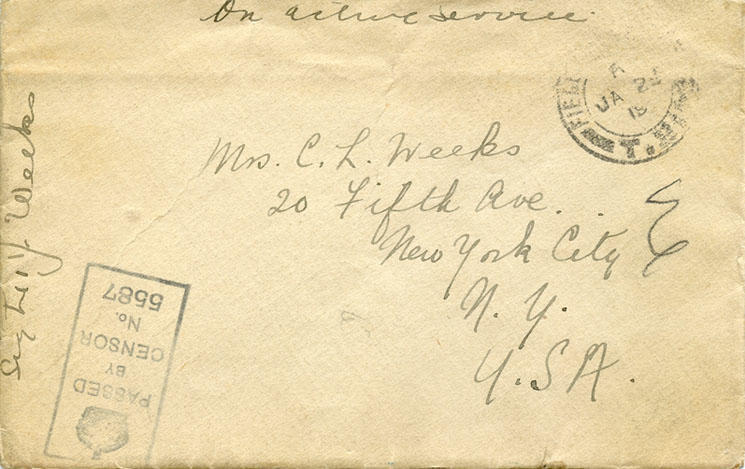 On active service
FIEL
A
JA 22
19
T.
Mrs. C. L. Weeks
20 Fifth Ave.
New York City
N. Y.
U.S.A.
Weeks
PASSED
BY
CENSOR
No.
5587